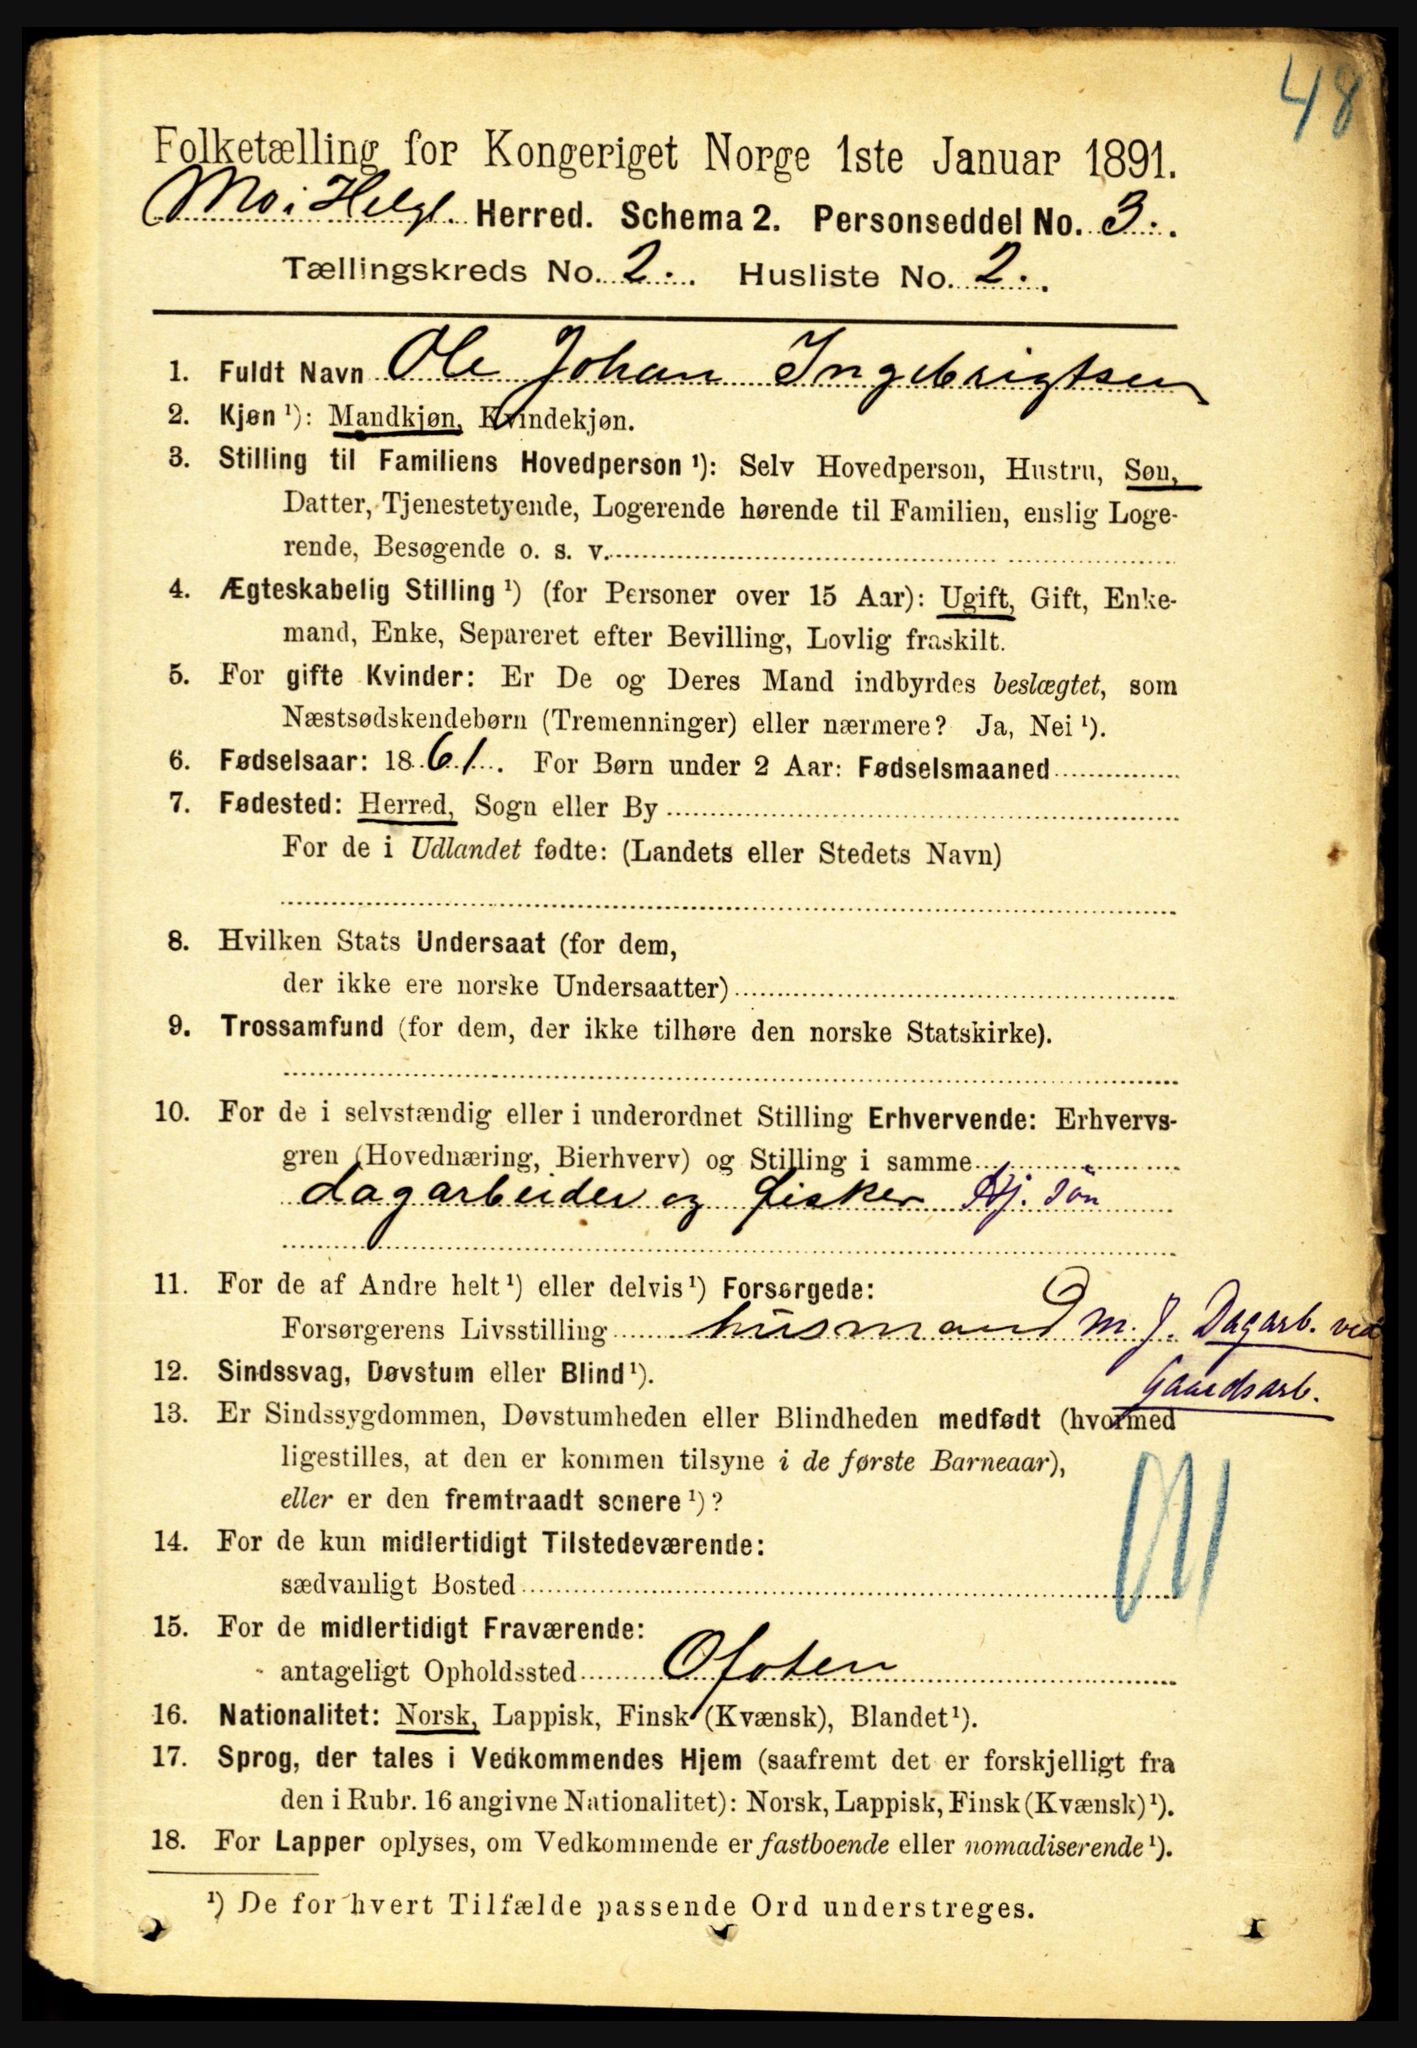 48
Folketælling for Kongeriget Norge 1ste Januar 1891.
Mo i Helgl. Herred. Schema 2. Personseddel No. 3.
Tællingskreds No. 2. Husliste No. 2.
1. Fuldt Navn Ole Johan Ingebrigtsen
2. Kjøn ¹): Mandkjøn, Kvindekjøn.
3. Stilling til Familiens Hovedperson ¹): Selv Hovedperson, Hustru, Søn,
Datter, Tjenestetyende, Logerende hørende til Familien, enslig Loge-
rende, Besøgende o. s. v.
4. Ægteskabelig Stilling ¹) (for Personer over 15 Aar): Ugift, Gift, Enke-
mand, Enke, Separeret efter Bevilling, Lovlig fraskilt.
5. For gifte Kvinder: Er De og Deres Mand indbyrdes beslægtet, som
Næstsødskendebørn (Tremenninger) eller nærmere? Ja, Nei ¹).
6. Fødselsaar: 1861. For Børn under 2 Aar: Fødselsmaaned
7. Fødested: Herred, Sogn eller By
For de i Udlandet fødte: (Landets eller Stedets Navn)
8. Hvilken Stats Undersaat (for dem,
der ikke ere norske Undersaatter)
9. Trossamfund (for dem, der ikke tilhøre den norske Statskirke).
10. For de i selvstændig eller i underordnet Stilling Erhvervende: Erhvervs-
gren (Hovednæring, Bierhverv) og Stilling i samme
dagarbeider og fisker Hj. søn
11. For de af Andre helt ¹) eller delvis ¹) Forsørgede:
Forsørgerens Livsstilling husmand m. J. Dagarb. ved
Gaardsarb.
12. Sindssvag, Døvstum eller Blind ¹).
13. Er Sindssygdommen, Døvstumheden eller Blindheden medfødt (hvormed
ligestilles, at den er kommen tilsyne i de første Barneaar),
eller er den fremtraadt senere ¹)?
14. For de kun midlertidigt Tilstedeværende:
sædvanligt Bosted
15. For de midlertidigt Fraværende:
antageligt Opholdssted Ofoten
16. Nationalitet: Norsk, Lappisk, Finsk (Kvænsk), Blandet ¹).
17. Sprog, der tales i Vedkommendes Hjem (saafremt det er forskjelligt fra
den i Rubr. 16 angivne Nationalitet): Norsk, Lappisk, Finsk (Kvænsk) ¹).
18. For Lapper oplyses, om Vedkommende er fastboende eller nomadiserende ¹).
¹) De for hvert Tilfælde passende Ord understreges.